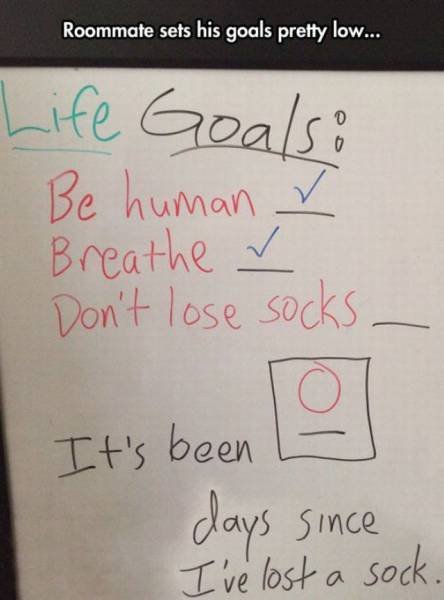 Roommate sets his goals pretty low...
Life Goals:
Be human ✓
Breathe ✓
Don't lose socks __
It's been 0
days since
I've lost a sock.